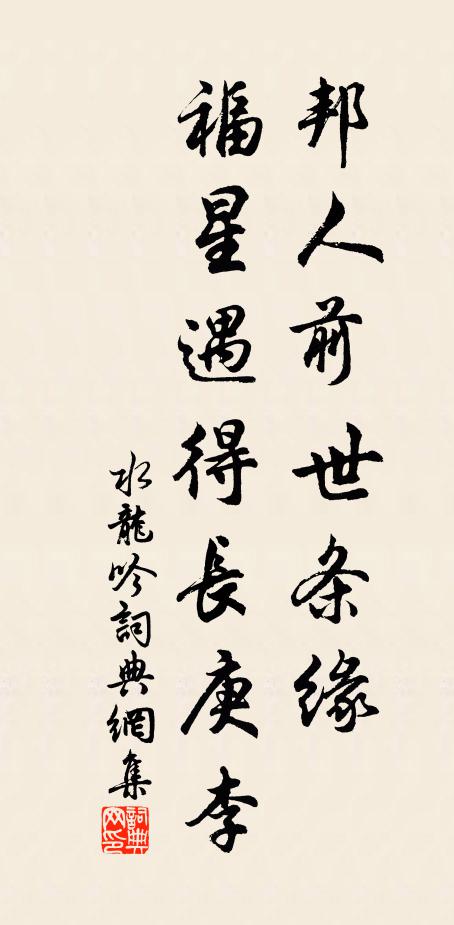 邦人前世条缘
福星遇得長庚李
水龍吟詞典網集
詞典
网印